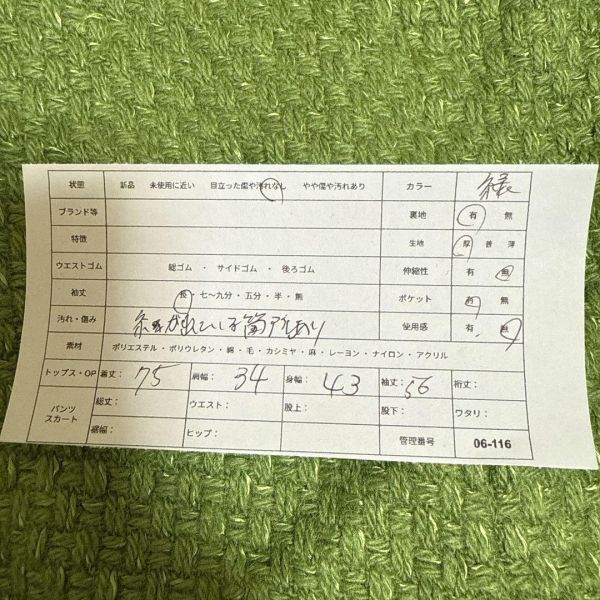 状態 新品 未使用に近い 目立った傷や汚れなし やや傷や汚れあり カラー 緑
ブランド等 裏地 有 無
特徴 生地 厚 普 薄
ウエストゴム 総ゴム ・ サイドゴム ・ 後ろゴム 伸縮性 有 無
袖丈 長・七〜九分・五分・半・無 ポケット 有 無
汚れ・傷み 糸が出ている箇所あり 使用感 有 無
素材 ポリエステル・ポリウレタン・綿・毛・カシミヤ・麻・レーヨン・ナイロン・アクリル
トップス・OP 着丈: 75 肩幅: 34 身幅: 43 袖丈: 56 裄丈:
パンツ スカート 総丈: ウエスト: 股上: 股下: ワタリ:
裾幅: ヒップ: 管理番号 06-116